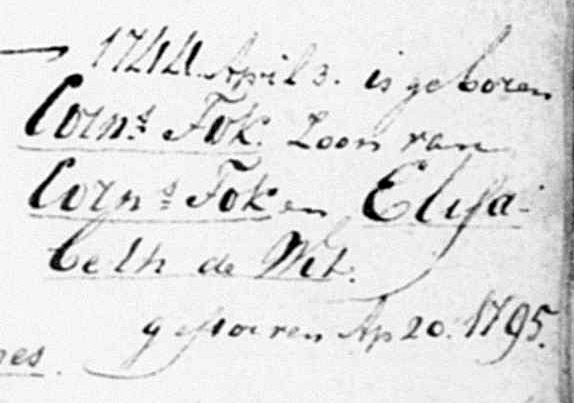 — 1744 April 3. is geboren
Corn.s Fok. Zoon van
Corn.s Fok en Elisa-
beth de Wit.
gestorven Ap 20. 1795.
nes.